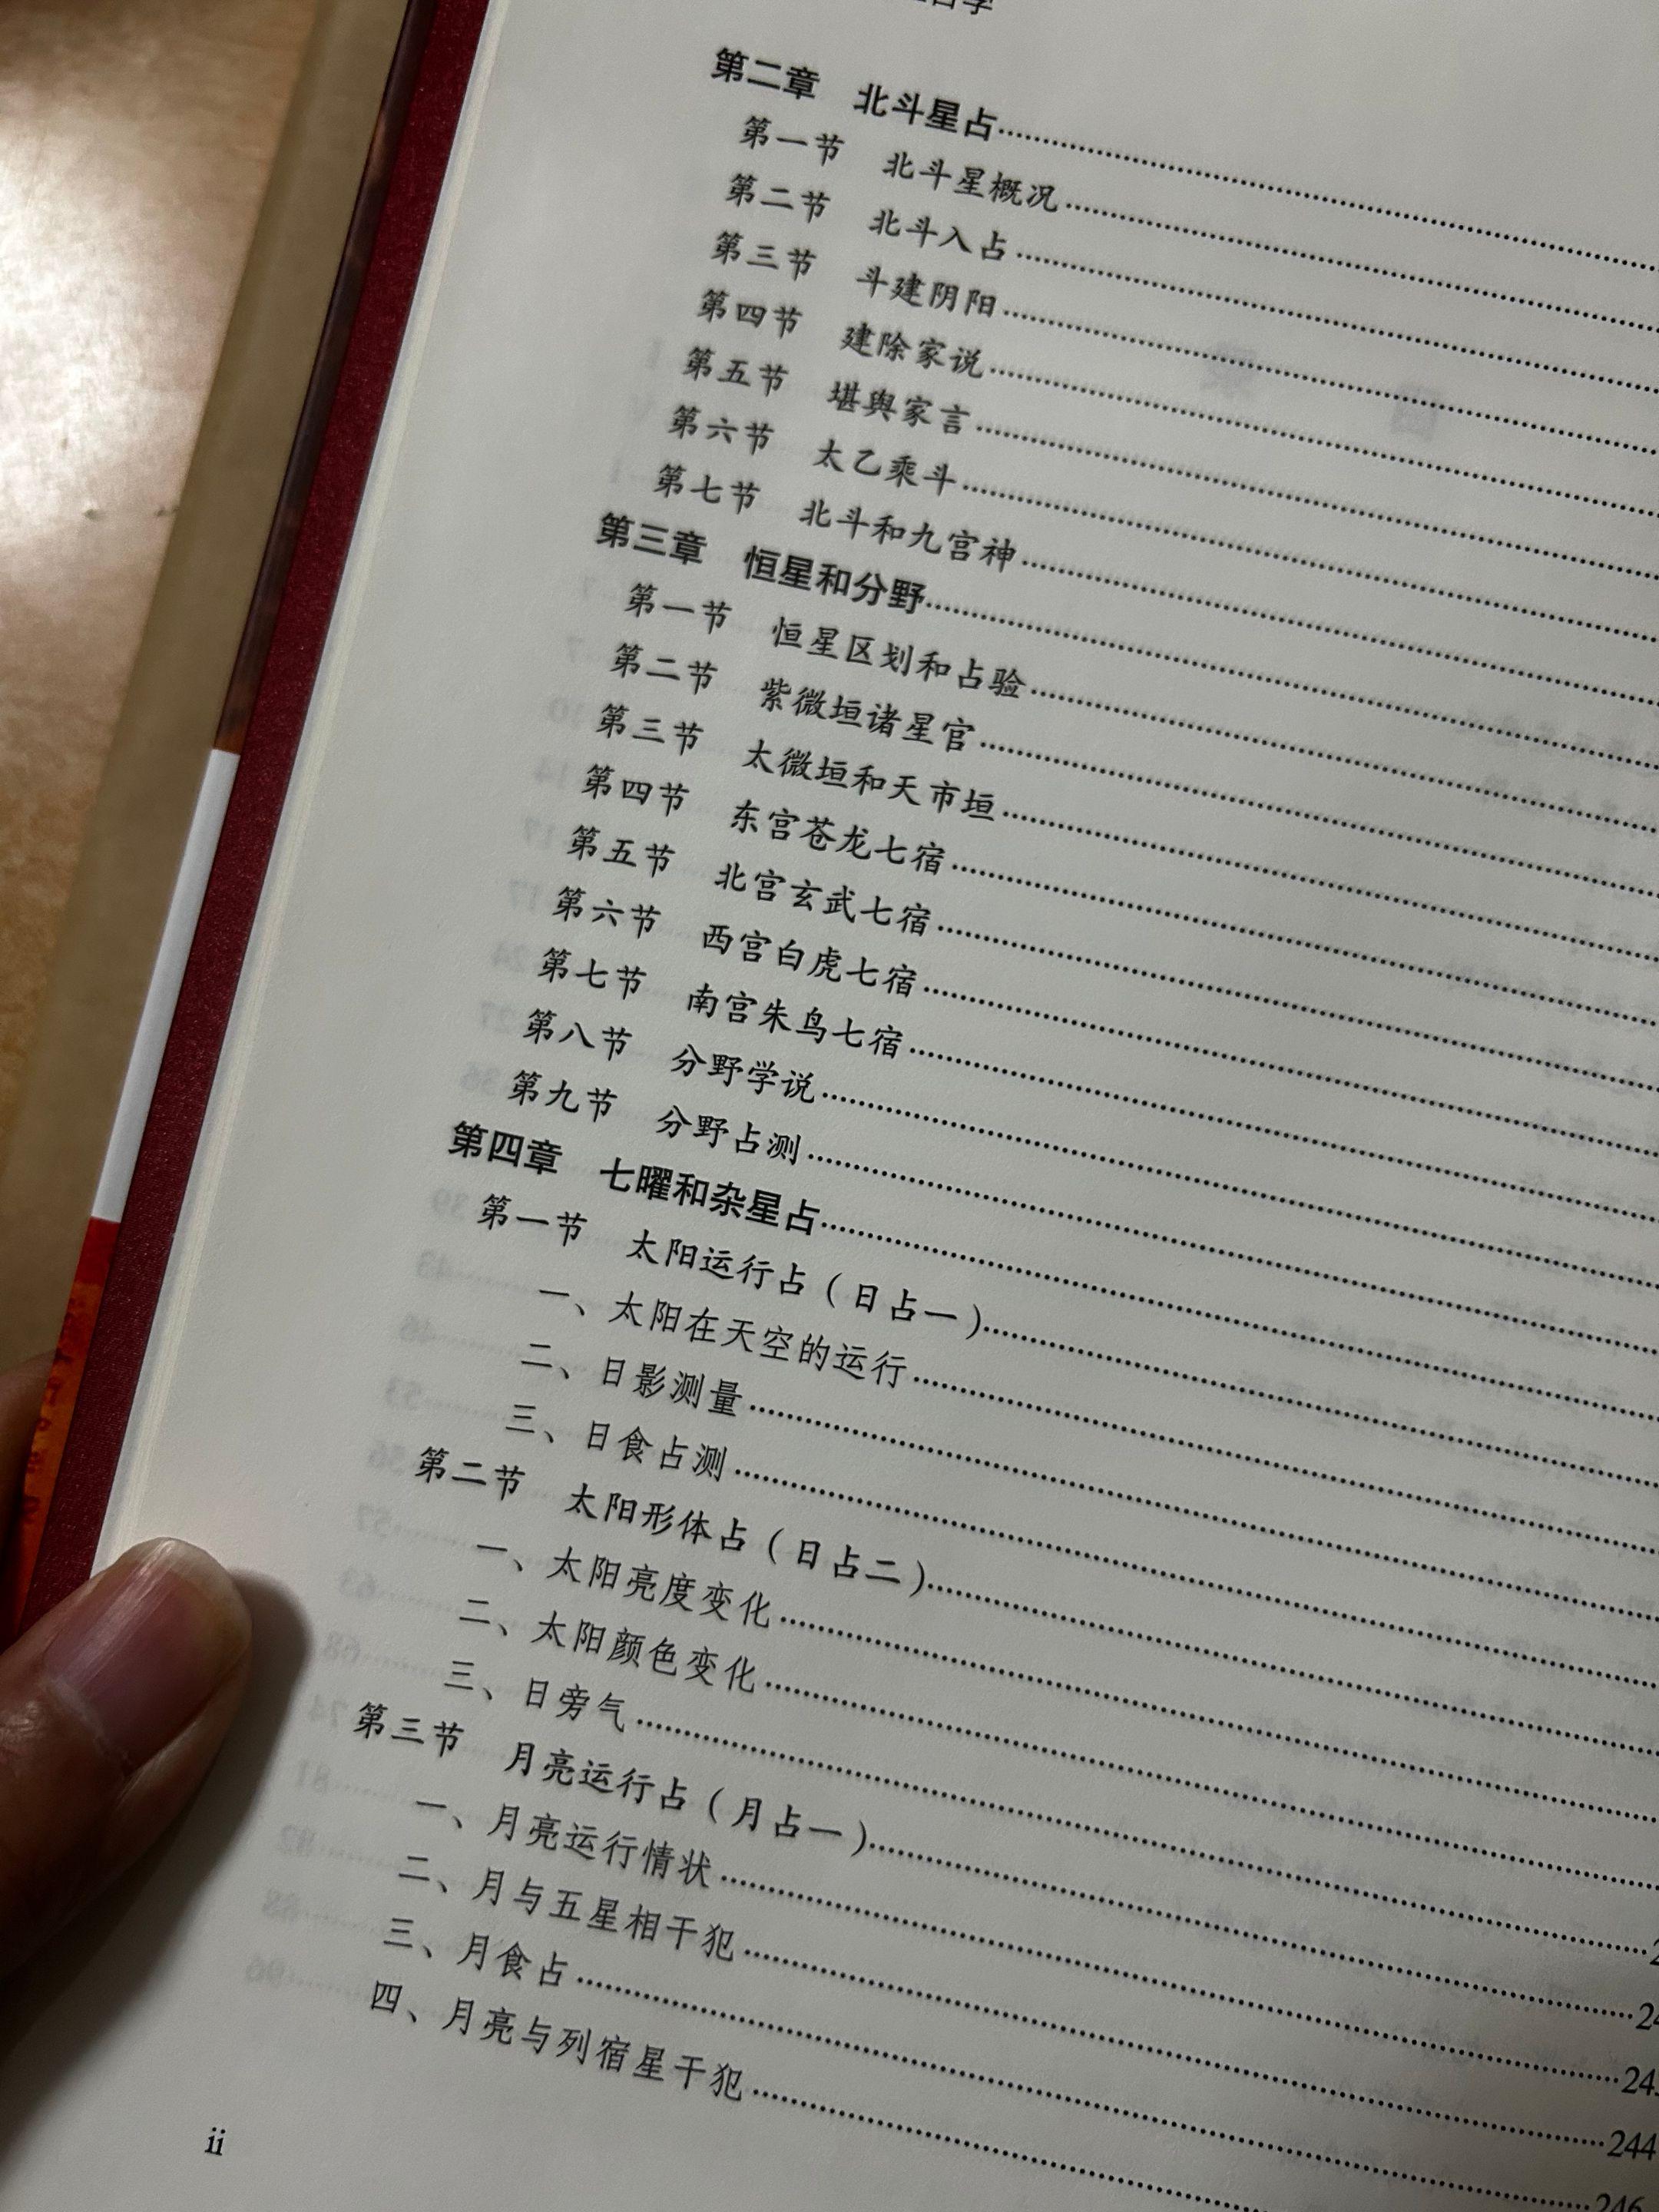 第二章 北斗星占
第一节 北斗星概况
第二节 北斗入占
第三节 斗建阴阳
第四节 建除家说
第五节 堪舆家言
第六节 太乙乘斗
第七节 北斗和九宫神
第三章 恒星和分野
第一节 恒星区划和占验
第二节 紫微垣诸星官
第三节 太微垣和天市垣
第四节 东宫苍龙七宿
第五节 北宫玄武七宿
第六节 西宫白虎七宿
第七节 南宫朱鸟七宿
第八节 分野学说
第九节 分野占测
第四章 七曜和杂星占
第一节 太阳运行占（日占一）
一、太阳在天空的运行
二、日影测量
三、日食占测
第二节 太阳形体占（日占二）
一、太阳亮度变化
二、太阳颜色变化
三、日旁气
第三节 月亮运行占（月占一）
一、月亮运行情状
二、月与五星相干犯
三、月食占 244
四、月亮与列宿星干犯 246
ii